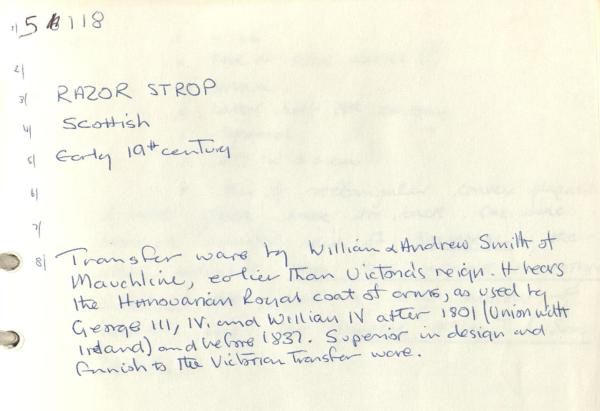 1/ 5 118
2/
3/ RAZOR STROP
4/ Scottish
5/ Early 19th century
6/
7/
8/ Transfer ware by William & Andrew Smith of
Mauchline, earlier than Victoria's reign. It bears
the Hanovarian Royal coat of arms, as used by
George III, IV. and William IV after 1801 (Union with
Ireland) and before 1837. Superior in design and
finnish to the Victorian Transfer ware.